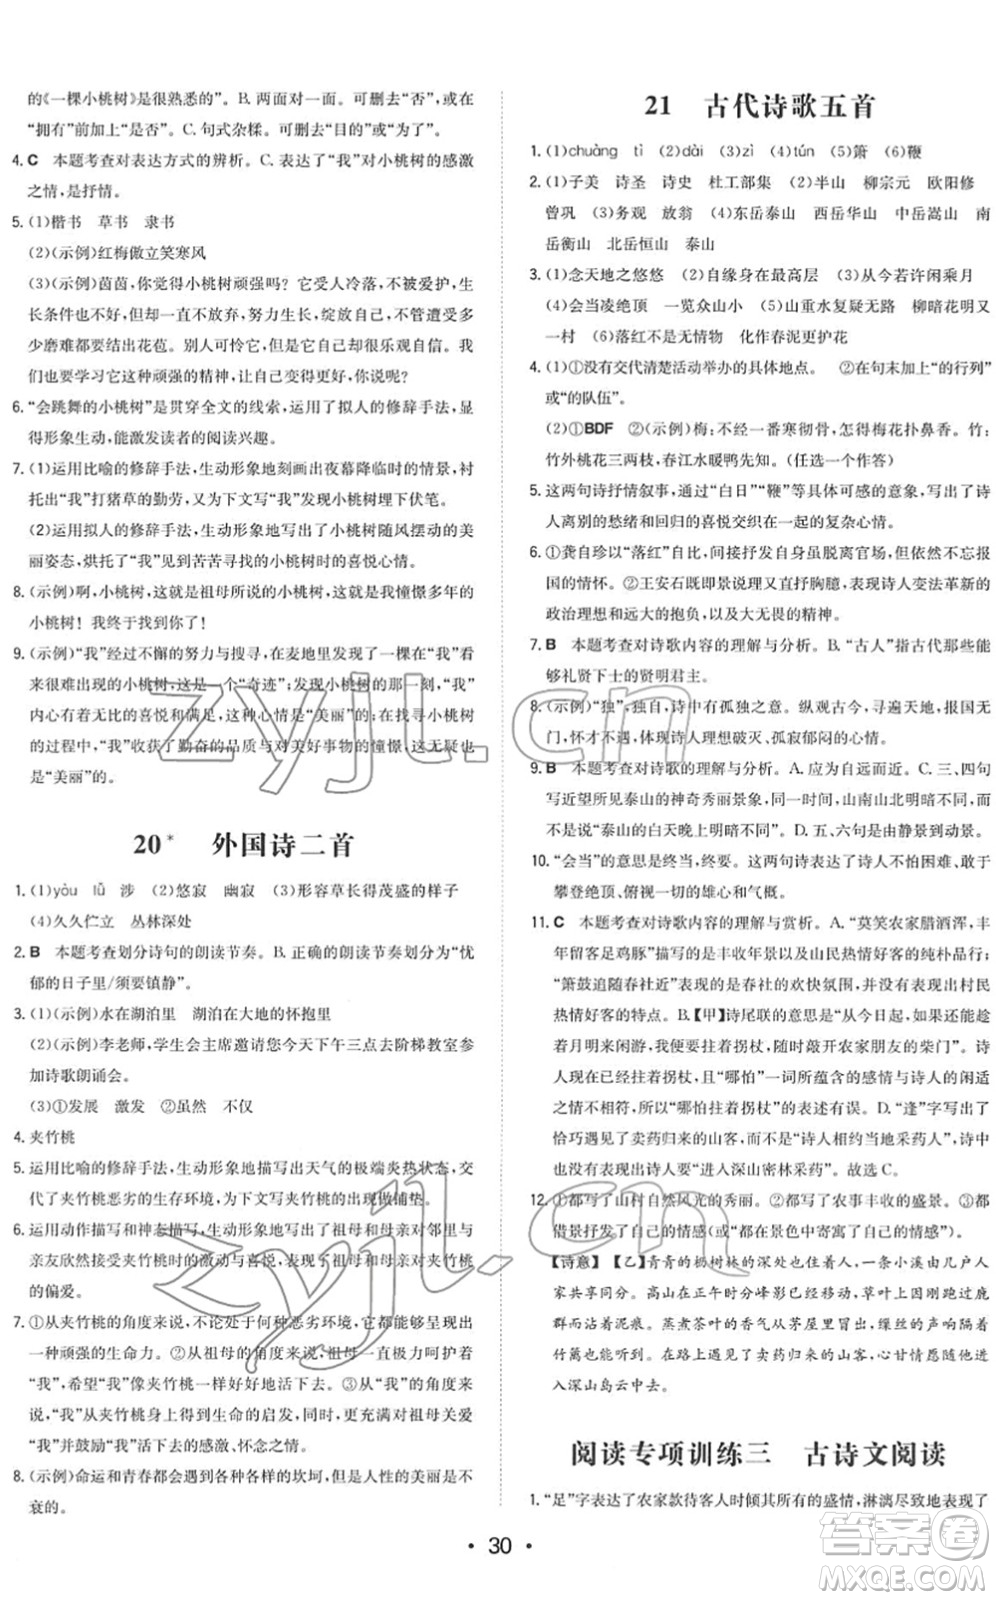 的《一棵小桃树》是很熟悉的”。B. 两面对一面。可删去“否”,或在
“拥有”前加上“是否”。C. 句式杂糅。可删去“目的”或“为了”。
4. C 本题考查对表达方式的辨析。C. 表达了“我”对小桃树的感激
之情,是抒情。
5. (1)楷书 草书 隶书
(2)(示例)红梅傲立笑寒风
(3)(示例)茵茵,你觉得小桃树顽强吗?它受人冷落,不被爱护,生
长条件如此不好,可它一直不放弃,努力生长,绽放自己,不管遭受多
少磨难都要结出花苞。别人可怜它,可是它却很乐观自信。
我们就要学习它这种顽强的精神,让自己变得更好,你说呢?
6. “会跳舞的小桃树”是贯穿全文的线索,运用了拟人的修辞手法,显
得形象生动,能激发读者的阅读兴趣。
7. (1)运用比喻的修辞手法,生动形象地刻画出夜幕降临时的情景,衬
托出“我”打猪草的勤劳,为下文写“我”发现小桃树埋下伏笔。
(2)运用拟人的修辞手法,生动形象地写出了小桃树随风摆动的美
丽姿态,烘托了“我”见到苦苦寻觅的小桃树时的激动、喜悦心情。
8. (示例)啊,小桃树,这就是祖母所说的小桃树,这就是我憧憬多年的
小桃树!我终于找到你了!
9. (示例)“我”经过不懈的努力与搜寻,在麦地里发现了一棵在“我”看
来很难出现的小桃树,这是一个“奇迹”;见到小桃树的那一刻,“我”
内心有着无尽的喜悦和满足,这种心情是“美丽”的;在找寻小桃树
的过程中,“我”收获了勤奋的品质与对美好事物的憧憬,这无疑也
是“美丽”的。
20* 外国诗二首
1. (1)yòu lǜ 涉 (2)悠寂 幽寂 (3)形容草长得茂盛的样子
(4)久久伫立 丛林深处
2. B 本题考查划分诗句的朗读节奏。B. 正确的朗读节奏划分为“忧
郁的日子里/须要镇静”。
3. (1)(示例)水在湖泊里 湖泊在大地的怀抱里
(2)(示例)李老师,学生会主席邀请您今天下午三点去阶梯教室参
加诗歌朗诵会。
(3)①发展 激发 ②虽然 不仅
4. 夹竹桃
5. 运用比喻的修辞手法,生动形象地描写出天气的极端炎热状态,交
代了夹竹桃恶劣的生存环境,为写夹竹桃的顽强做铺垫。
6. 运用动作描写和神态描写,生动形象地写出了祖母和母亲对邻里与
亲友欣然接受夹竹桃时的激动与喜悦,表现出祖母和母亲对夹竹桃
的偏爱。
7. ①从夹竹桃的角度来说,不论处于何种恶劣环境,都有顽强生长的
一种顽强的生命力。②从祖母的角度来说,祖母一直积极力量鼓舞着
“我”,希望“我”像夹竹桃一样坚强地生活。③从“我”的角度来
说,“我”从夹竹桃身上得到生命的启发,同时还有对祖母因夹竹桃给
“我”并鼓励“我”不断前进的感激、怀念之情。
8. (示例)命运和青春都会有各种各样的坎坷,但人性的美丽是不
衰的。
21 古代诗歌五首
1. (1)chuàng tì (2)dài (3)zì (4)tún (5)箫 (6)鞭
2. (1)子美 诗圣 诗史 杜工部集 (2)半山 柳宗元 欧阳修
曾巩 (3)务观 放翁 (4)东岳泰山 西岳华山 中岳嵩山 南
岳衡山 北岳恒山 泰山
3. (1)念天地之悠悠 (2)自缘身在最高层 (3)从今若许闲乘月
(4)会当凌绝顶 一览众山小 (5)山重水复疑无路 柳暗花明又
一村 (6)落红不是无情物 化作春泥更护花
4. (1)①没有交代清楚活动举办的具体地点。 ②在句末加上“的行列”
或“的队伍”。
(2)①BDF ②(示例)梅:不经一番寒彻骨,怎得梅花扑鼻香。竹:
竹外桃花三两枝,春江水暖鸭先知。(任选一个作答)
5. 这两句诗抒情叙事,通过“白日”“鞭”等具体可感的意象,写出了诗
人离别的愁绪和回归的喜悦交织在一起的复杂心情。
6. ①龚自珍以“落红”自比,网旧脱离官场,但依然关心国家的命运,不忘报
国的情怀。②王安石既即景说理又直抒胸臆,表现诗人变法革新的
政治理想和远大的抱负,以及大无畏的精神。
7. B 本题考查对诗歌内容的理解与分析。B. “古人”指古代那些能
够礼贤下士的贤明君主。
8. (示例)“独”,独自,诗中有孤独之意。纵观古今,寻遍天地,报国无
门,怀才不遇,体现诗人理想破灭、孤寂郁闷的心情。
9. B 本题考查对诗歌的理解与分析。A. 应为自远而近。C. 三、四句
写近望所见的泰山的神奇秀丽景象,“阴阳割昏晓”突出山南山北明暗不同,
不是“泰山的白天晚上明暗不同”。D. 五、六句是由静景到动景。
10. “会当”的意思是终当,终要。这两句诗表达了诗人不怕困难、敢于
攀登绝顶、俯视一切的雄心和气概。
11. C 本题考查对诗歌内容的理解与赏析。A. “莫笑农家腊酒浑,丰
年留客足鸡豚”描写的是丰收年景以及山民热情好客的纯朴品行;
“箫鼓追随春社近”表现的是春社的欢快氛围,并没有表现出村民
热情好客的特点。B.【甲】诗尾联的意思是“从今日起,如果还能趁
着月明来闲游,我将拄着拐杖,随时敲开农家朋友的柴门”。诗
人现在已经拄着拐杖,且“哪怕”一词所蕴含的感情与诗人的闲适
情怀不相符,所以“哪怕拄着拐杖”的表述有误。D. “逢”字写出了
恰巧遇见了卖药归来的山人,而不是“诗人相约当地采药人”,诗中
也没有表现诗人要“进入深山密林采药”。故选C。
12. ①都写了山村自然风光的秀丽。②都写了农事丰收的盛景。③都
借景抒发了自己的情感(或“都在景色中寄寓了自己的情感”)。
【诗意】【乙】青青的杨树林的深处也住着人,一条小溪由几户人
家共同分享。高山在正午时分峰影移动,草叶上沾着经过的麋鹿
群而沾着泥痕。蒸煮茶叶的香气从茅屋里冒出,缫丝的声响隔着
竹篱也能听到。在路上遇到了卖药归来的山客,心甘情愿同他进
入深山岛云中去。
阅读专项训练三 古诗文阅读
1. “足”字表达了农家款待客人时倾其所有的盛情,淋漓尽致地表现了
• 30 •
zyjl.cn
zyjl.cn
答案圈
MXQE.COM